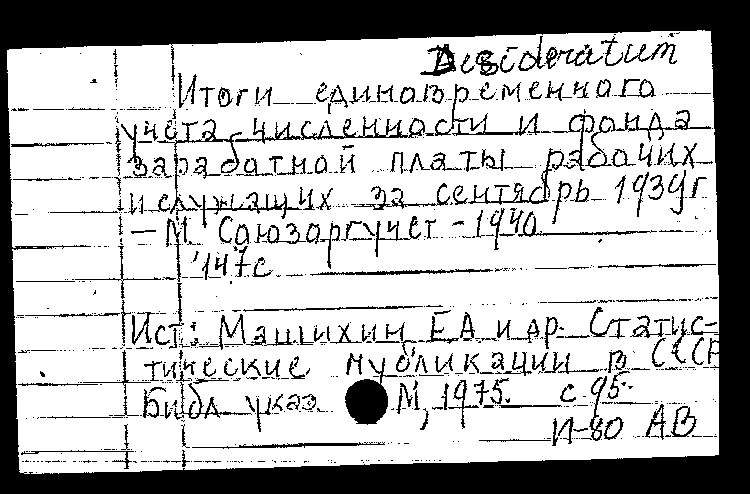 Desideratum
Итоги единовременного
учета численности и фонда
заработной платы рабочих
и служащих за сентябрь 1939г
— М. Союзоргучет - 1940
147с.
Ист: Машихин, Е.А и др. Статис-
тические публикации в СССР
Библ. указ. М, 1975. с. 95.
И-80 АВ